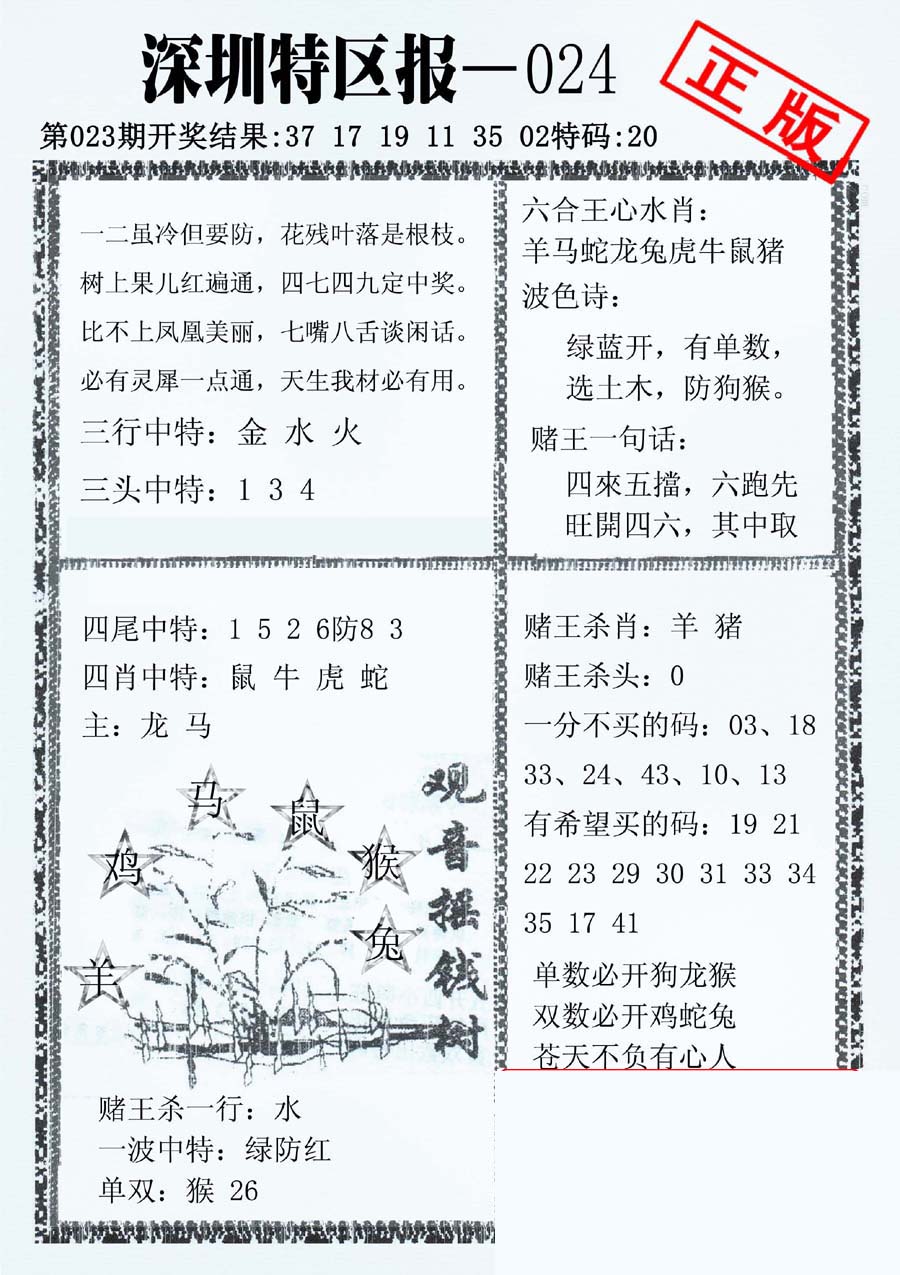 深圳特区报—024
正版
第023期开奖结果:37 17 19 11 35 02特码:20
一二虽冷但要防，花残叶落是根枝。
树上果儿红遍通，四七四九定中奖。
比不上凤凰美丽，七嘴八舌谈闲话。
必有灵犀一点通，天生我材必有用。
三行中特：金 水 火
三头中特：1 3 4
六合王心水肖：
羊马蛇龙兔虎牛鼠猪
波色诗：
绿蓝开，有单数，
选土木，防狗猴。
赌王一句话：
四來五擋，六跑先
旺開四六，其中取
四尾中特：1 5 2 6防8 3
四肖中特：鼠 牛 虎 蛇
主：龙 马
马
鼠
鸡
猴
兔
羊
观音摇钱树
赌王杀一行：水
一波中特：绿防红
单双：猴 26
赌王杀肖：羊 猪
赌王杀头：0
一分不买的码：03、18
33、24、43、10、13
有希望买的码：19 21
22 23 29 30 31 33 34
35 17 41
单数必开狗龙猴
双数必开鸡蛇兔
苍天不负有心人